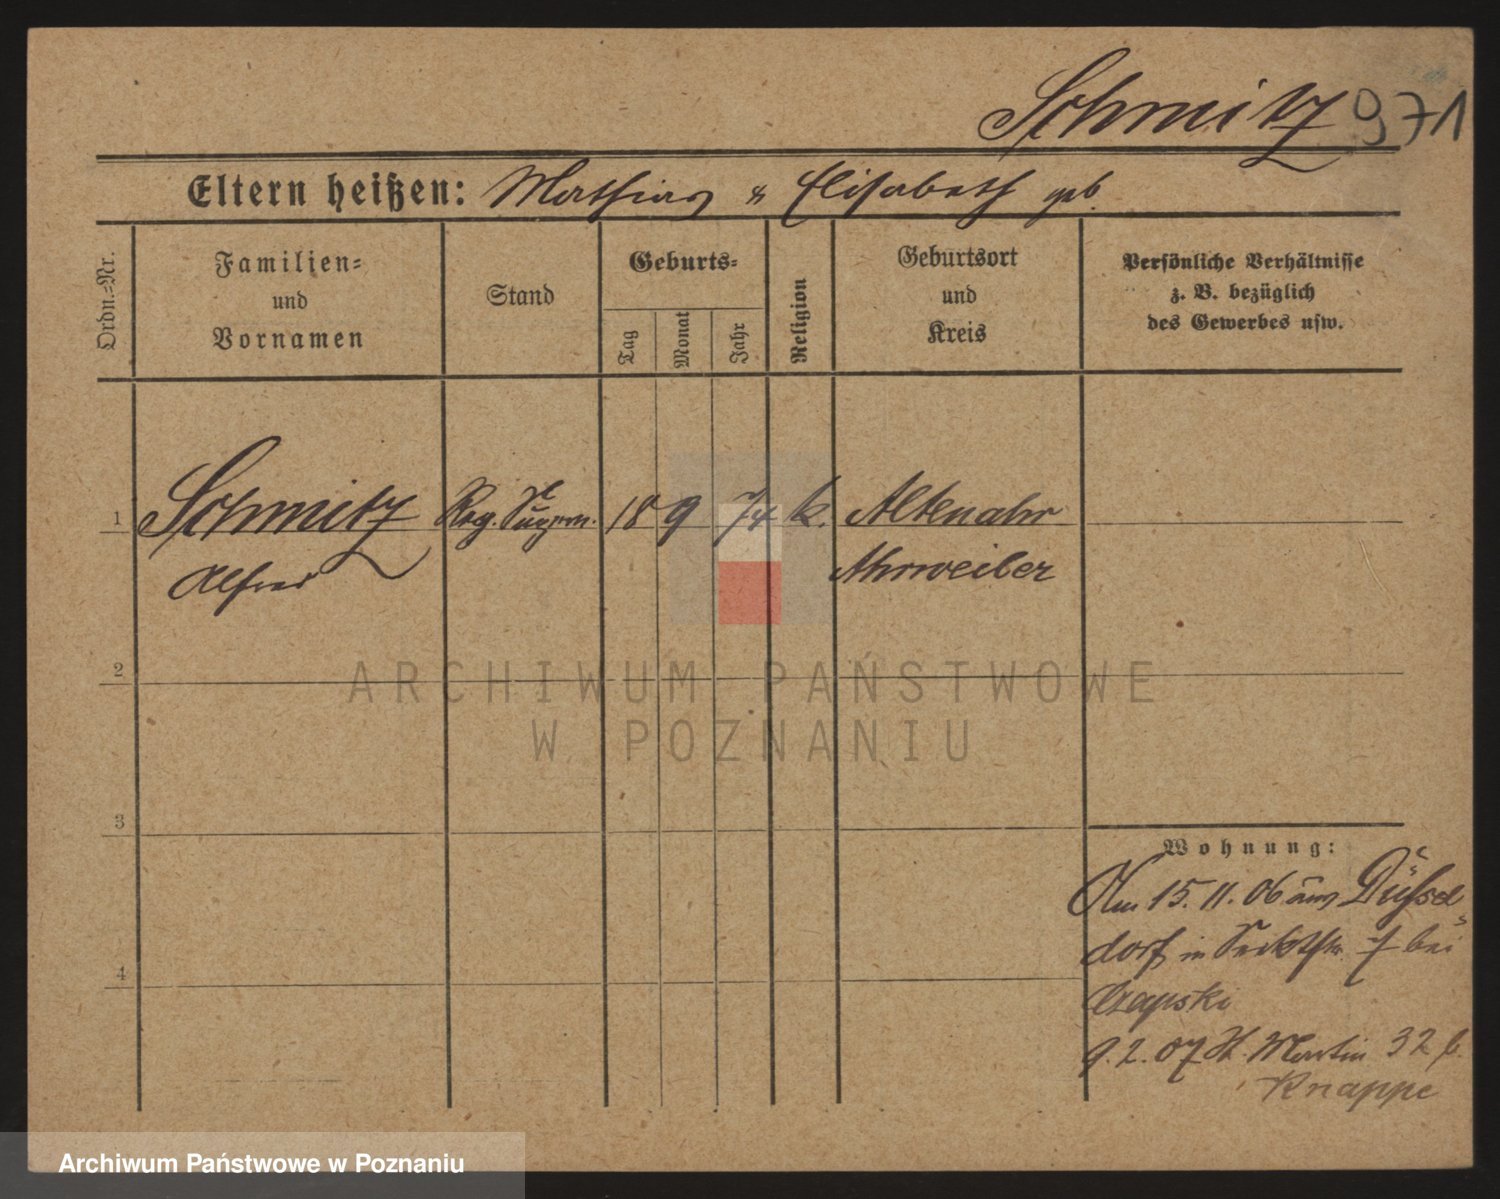 Schmitz 971
Eltern heißen: Mathias & Elisabeth geb.
Ordn.-Nr.
Familien-
und
Vornamen
Stand
Geburts-
Tag
Monat
Jahr
Religion
Geburtsort
und
Kreis
Persönliche Verhältnisse
z. B. bezüglich
des Gewerbes usw.
1 Schmitz Reg. 18 9 74 k. Altenahr
Alfred Ahrweiler
2
ARCHIWUM PAŃSTWOWE
W POZNANIU
3
Wohnung:
Am 15. 11. 06 aus Düssel
dorf in 7 bei
4
Czapski
9. 2. 07 St. Martin 32 b.
Knappe
Archiwum Państwowe w Poznaniu